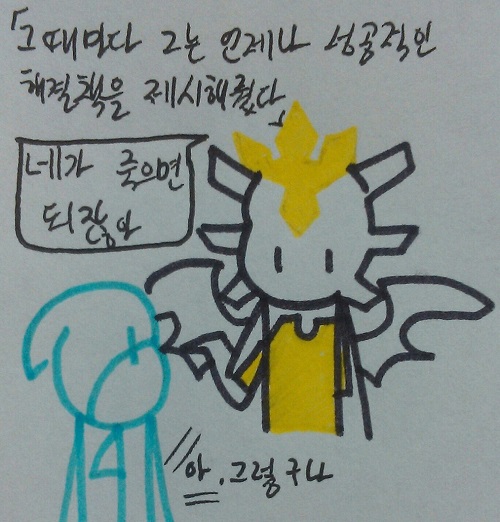 「그때마다 그는 언제나 성공적인
해결책을 제시해줬다」
네가 죽으면
되잖아
아, 그렇구나